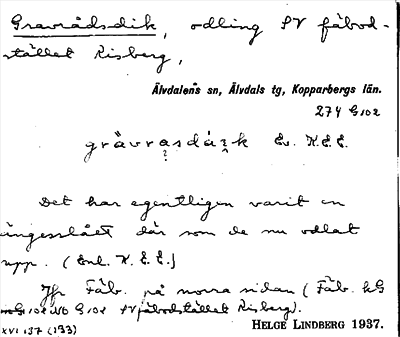 Gravråsdik, odling SV fäbod-
stället Risberg,
Älvdalens sn, Älvdals tg, Kopparbergs län.
274 G102
Ev. K.E.E.
Det har egentligen varit en
ängesslået där som de nu odlat
upp. (Enl. K. E. E.)
Jfr Fäb. på norra sidan (Fäb. kG
102 NO G102 SV fäbodstället Risberg).
HELGE LINDBERG 1937.
XVI 137 (133)